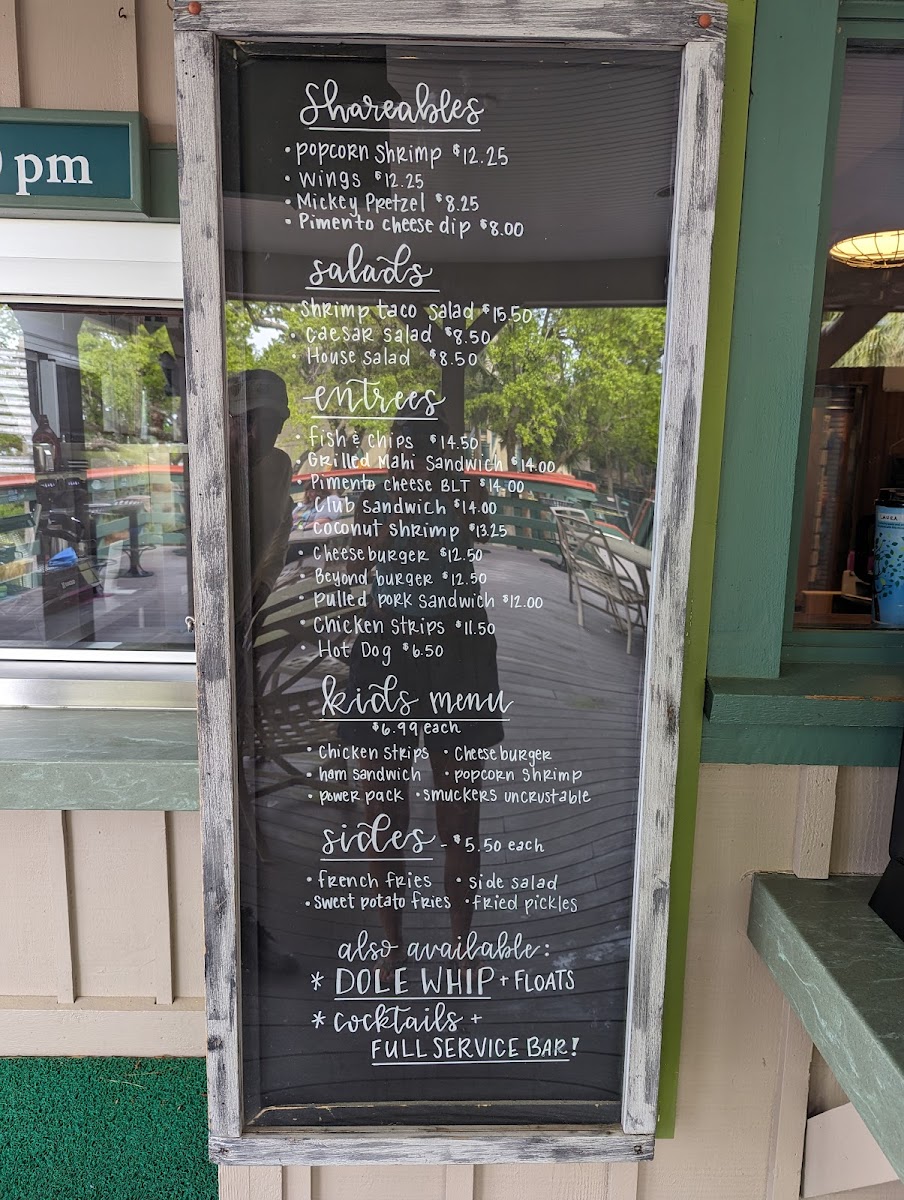 pm
Shareables
• popcorn shrimp $12.25
• wings $12.25
• Mickey Pretzel $8.25
• Pimento cheese dip $8.00
salads
• shrimp taco salad $15.50
• caesar salad $8.50
• House salad $8.50
entrees
• fish & chips $14.50
• Grilled Mahi Sandwich $14.00
• Pimento cheese BLT $14.00
• Club Sandwich $14.00
coconut shrimp $13.25
• cheeseburger $12.50
• Beyond burger $12.50
• pulled pork sandwich $12.00
• Chicken Strips $11.50
• Hot Dog $6.50
kids menu
$6.99 each
• Chicken Strips • Cheeseburger
• ham sandwich • popcorn shrimp
• power pack • smuckers uncrustable
sides - $5.50 each
• french fries • side salad
• sweet potato fries • fried pickles
also available:
* DOLE WHIP + FLOATS
* cocktails +
FULL SERVICE BAR!